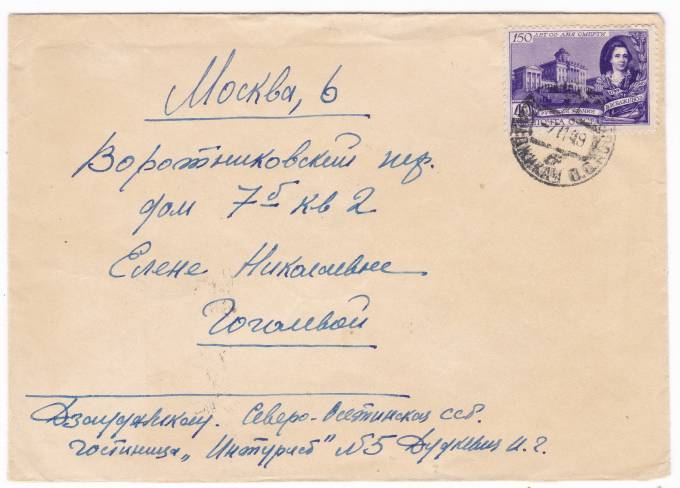 150 ЛЕТ СО ДНЯ СМЕРТИ
40
В.И. БАЖЕНОВ
7 11 49
Москва, 6
Воротниковский пер.
дом 7б кв 2
Елене Николаевне
Гоголевой
Дзауджикау. Северо-Осетинская ССР.
гостиница "Интурист" №5 Дудкевич И. Г.